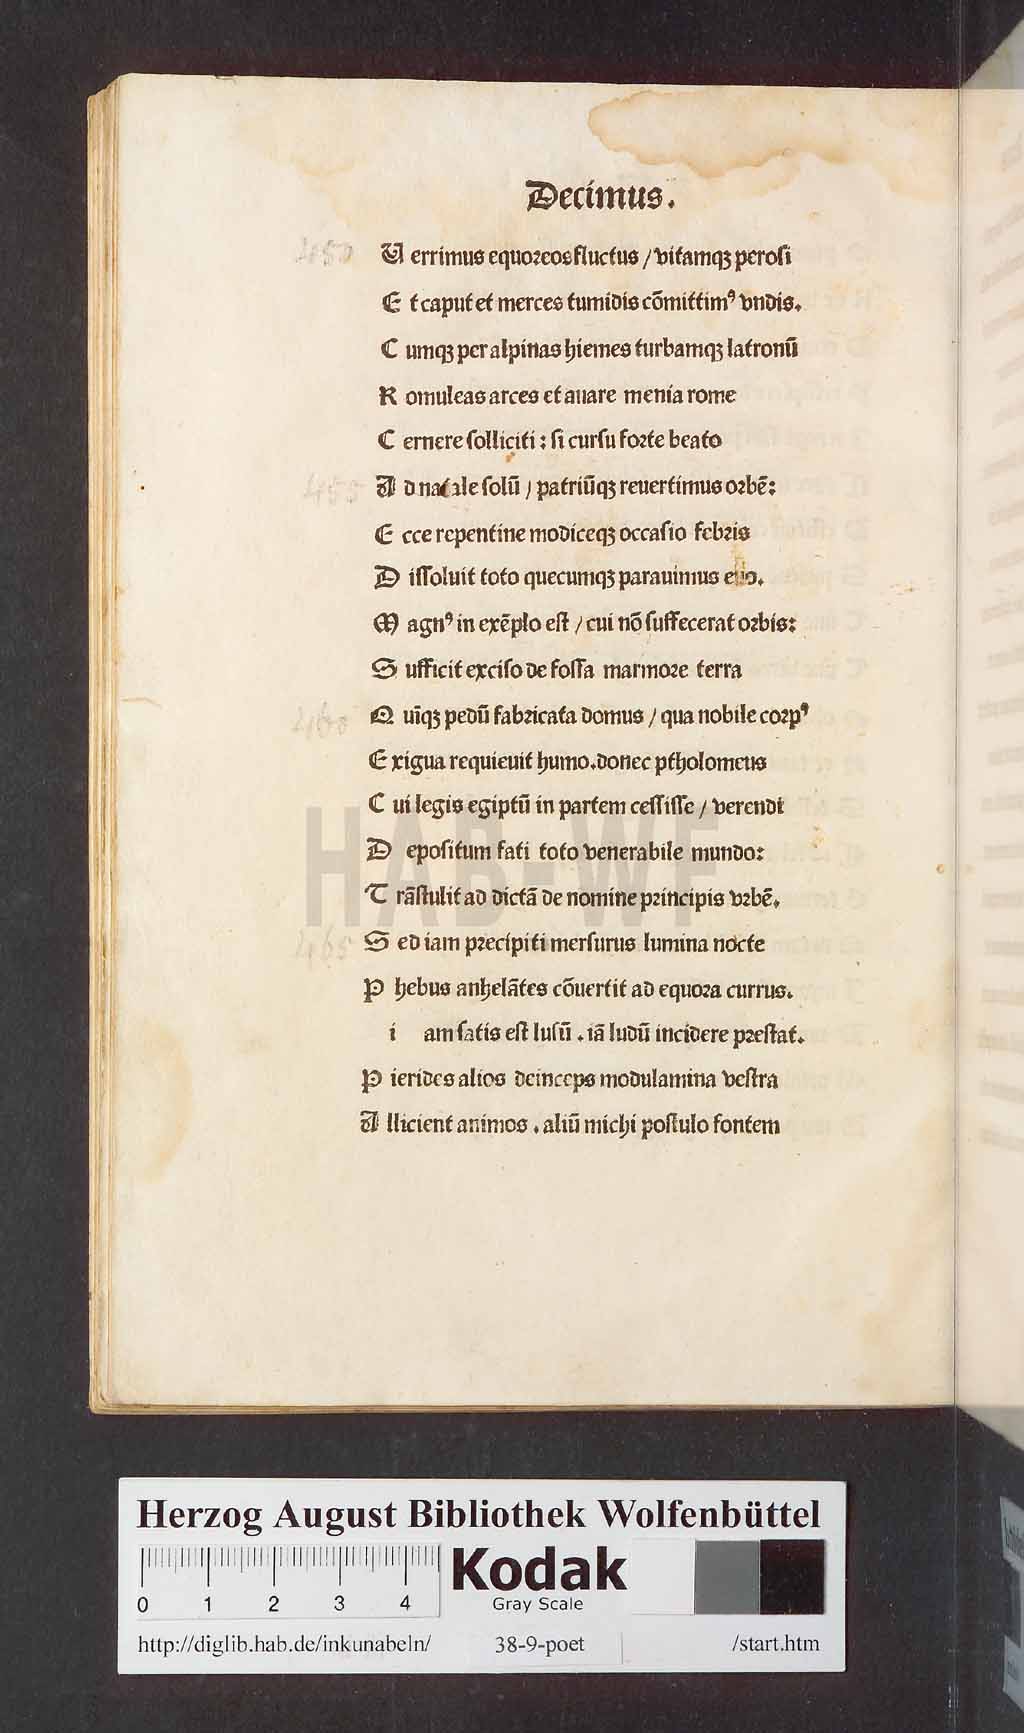 Decimus.
450
U errimus equoꝛeos fluctus / vitamqꝫ perosi
E t caput et merces tumidis cõmittimꝰ vndis.
C umqꝫ per alpinas hiemes turbamqꝫ latronũ
R omuleas arces et auare menia rome
C ernere solliciti : si cursu foꝛte beato
455
A d natale solũ / patriũqꝫ reuertimus oꝛbẽ:
E cce repentine modiceqꝫ occasio febꝛis
D issoluit toto quecumqꝫ parauimus euo.
M agnꝰ in exẽplo est / cui nõ suffecerat oꝛbis:
S ufficit exciso de fossa marmoꝛe terra
460
Q uĩqꝫ pedũ fabꝛicata domus / qua nobile coꝛpꝰ
E xigua requieuit humo. donec ptholomeus
C ui legis egiptũ in partem cessisse / verendi
D epositum fati toto venerabile mundo:
T rãstulit ad dictã de nomine pꝛincipis vꝛbẽ.
465
S ed iam pꝛecipiti mersurus lumina nocte
P hebus anhelãtes cõuertit ad equoꝛa currus.
i am satis est lusũ . iã ludũ incidere pꝛestat.
P ierides alios deinceps modulamina vestra
A llicient animos . aliũ michi postulo fontem
HAB-WF
Herzog August Bibliothek Wolfenbüttel
0 1 2 3 4
Kodak
Gray Scale
http://diglib.hab.de/inkunabeln/ 38-9-poet /start.htm